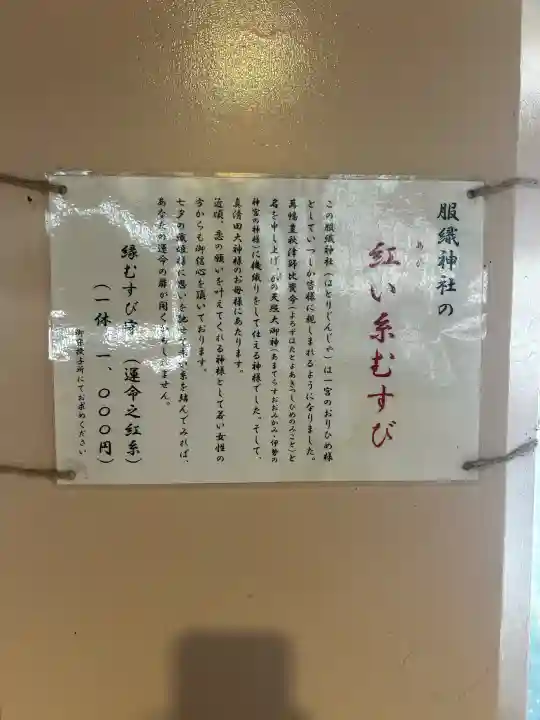 服織神社の
あか
紅い糸むすび
この服織神社(はとりじんじゃ)は一宮のおりひめ様
としていつしか皆様に親しまれるようになりました。
萬幡豊秋津師比賣命(よろずはたとよあきつしひめのみこと)と
名を申し上げ、かの天照大御神(あまてらすおおみかみ・伊勢の
神宮の神様)に機織りをして仕える神様でした。そして、
真清田大神様のお母様にあたります。
近頃、恋の願いを叶えてくれる神様として若い女性の
方からも御信心を頂いております。
七夕の織姫様に思いを馳せて赤い糸を結んでみれば、
あなたの運命の扉が開くかもしれません。
縁むすび守(運命之紅糸)
(一体 一、〇〇〇円)
御守授与所にてお求めください